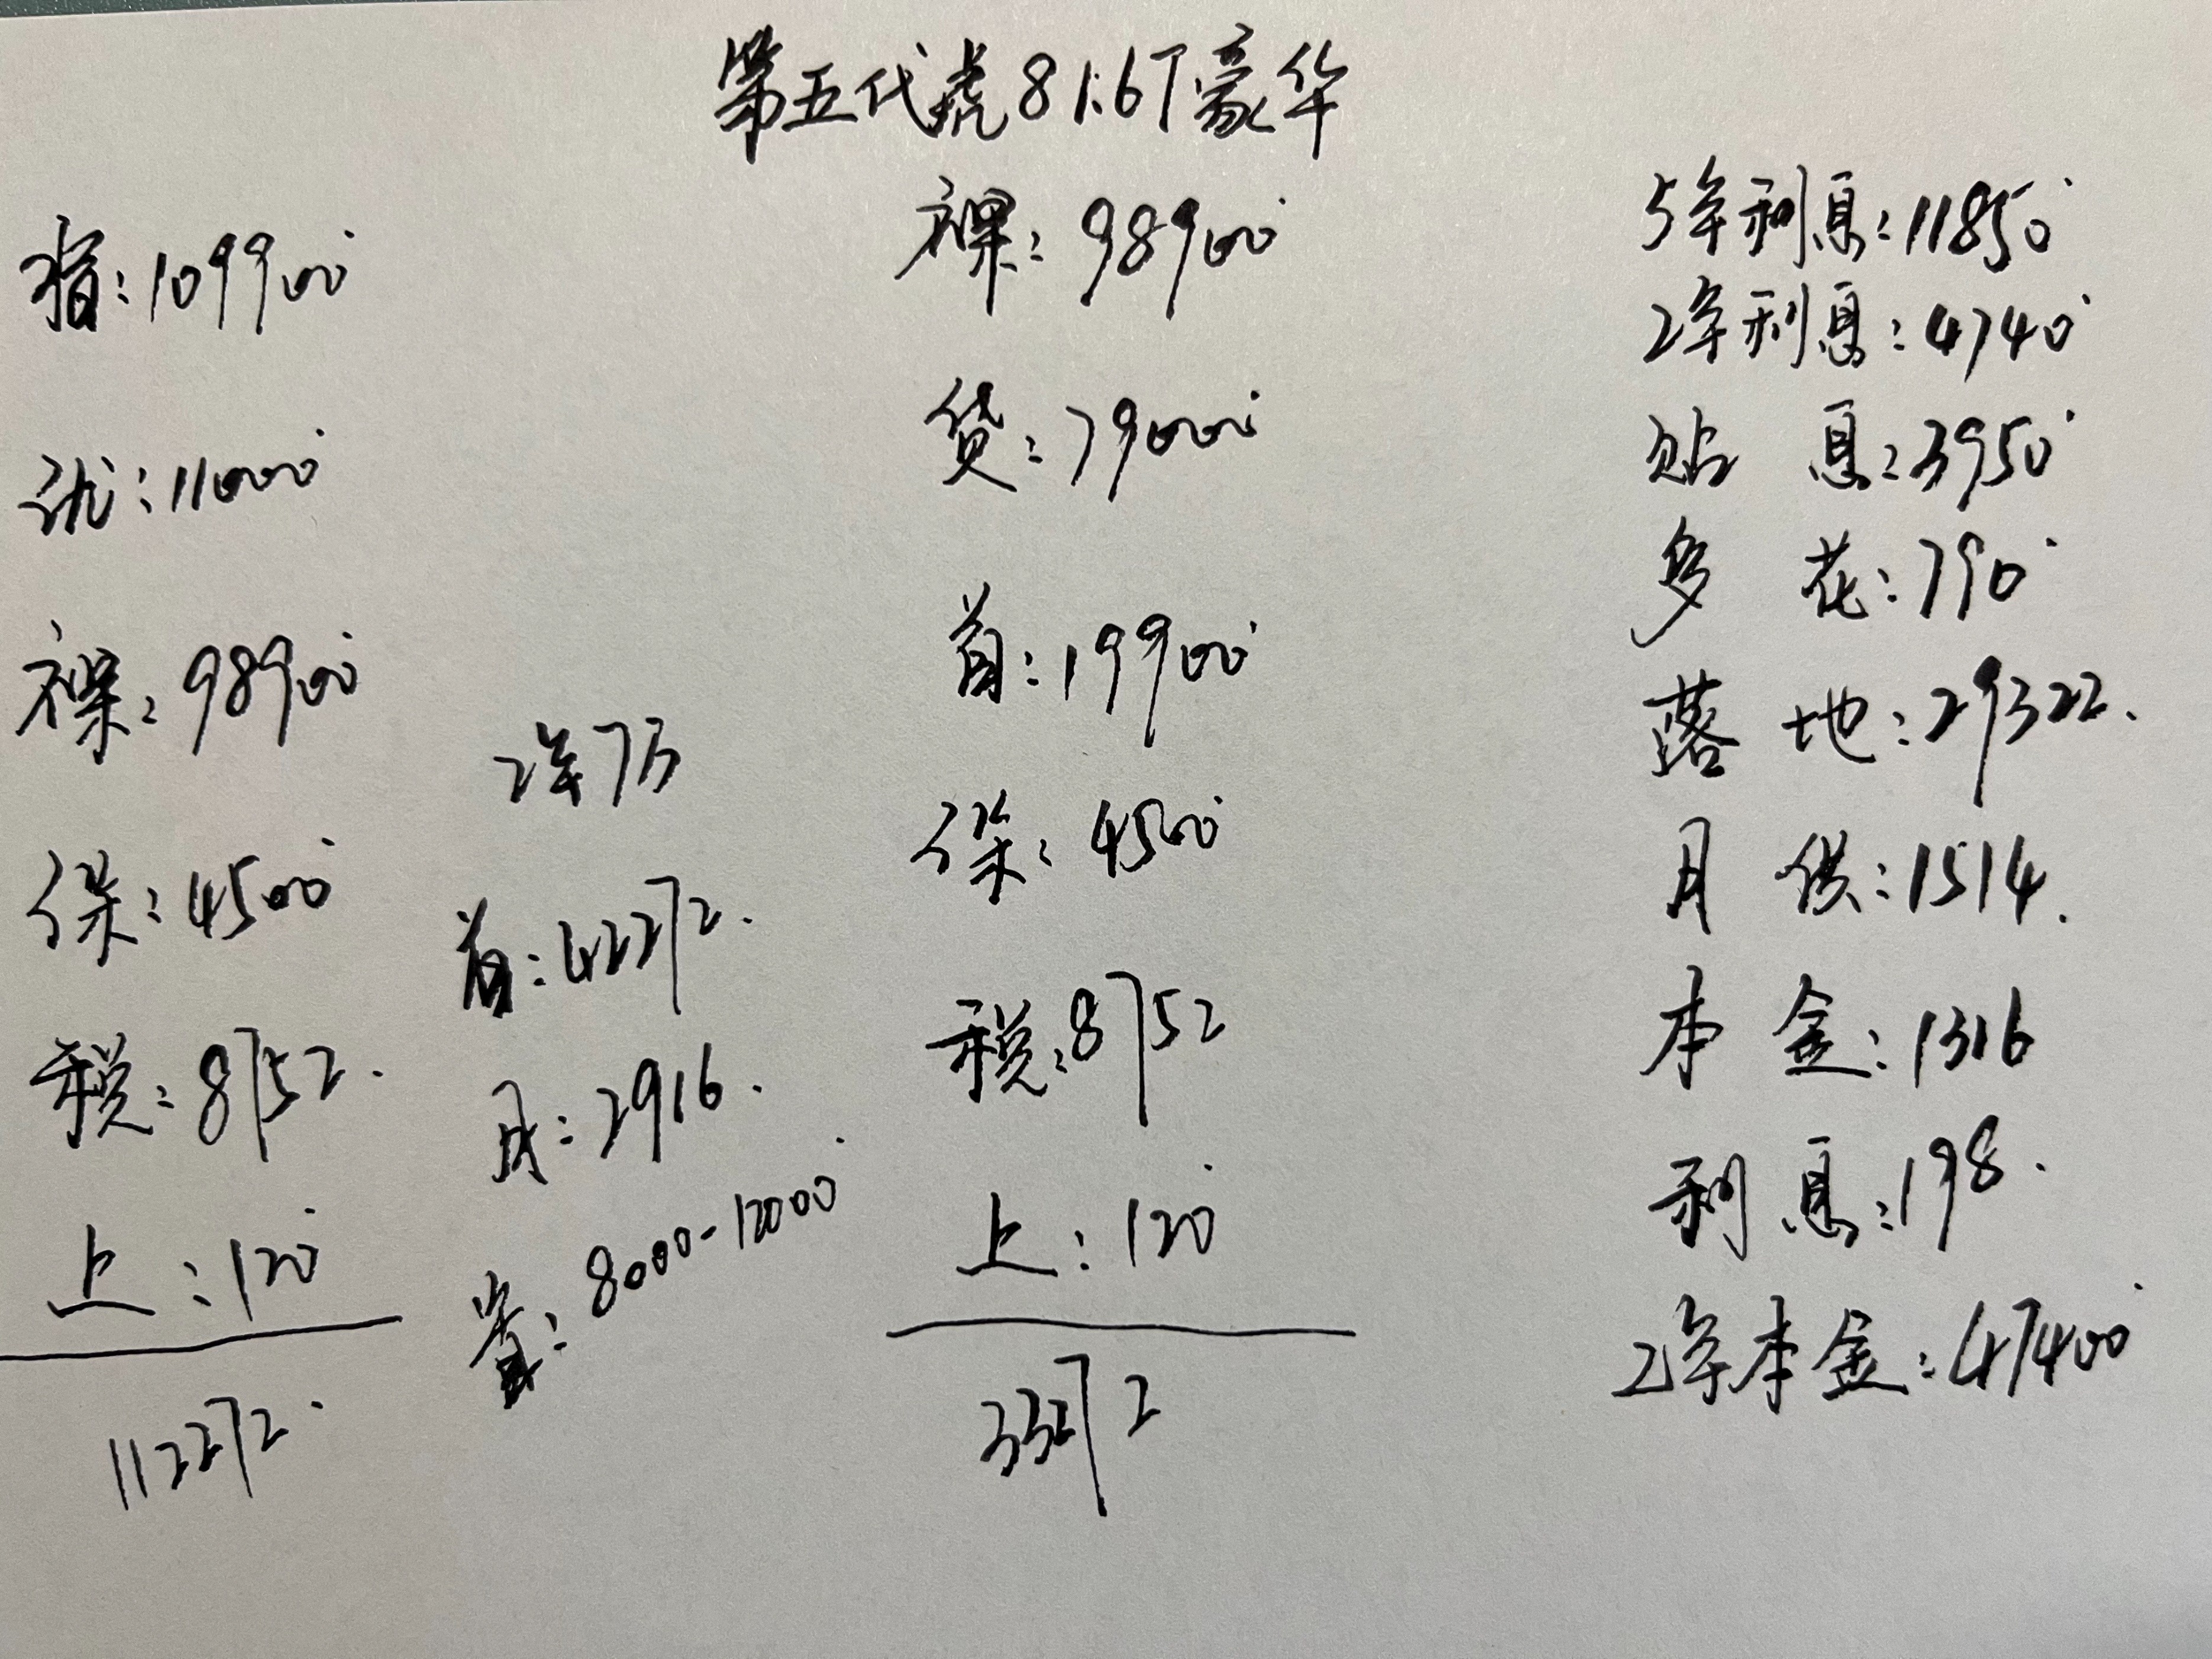 第五代虎8 1.6T豪华
指:109900
优:11000
裸:98900
保:4500
税:8752.
上:120
112272.
2年7万
首:42272.
月:2916.
置:8000-12000
裸:98900
贷:79000
首:19900
保:4500
税:8752
上:120
33272
5年利息:11850
2年利息:4740
贴息:3950
多花:790
落地:29322.
月供:1514.
本金:1316
利息:198.
2年本金:47400